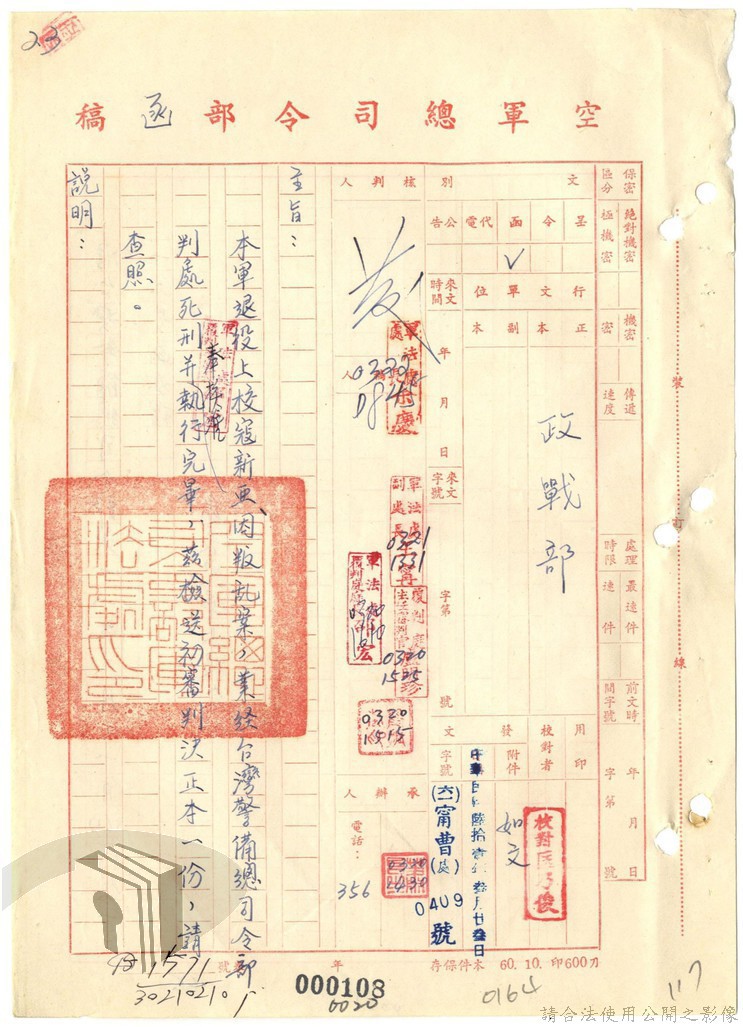 23
空軍總司令部函稿
保密區分
絕對機密
極機密
機密
密
傳遞速度
處理時限
最速件
速件
前文時間字號
年月日
字第號
文別
呈
令
函
代電
公告
✓
行文單位
正本
副本
政戰部
來文時間
年月日
來文字號
字第號
用印
校對者
附件
如文
發文字號
中華民國陸拾壹年叁月廿叁日
(六一)甯曹(處)0409號
核判人
0322
0321
1331
0320
1525
0320
1515
承辦人
電話:
356
主旨:
本軍退役上校寇新亞因叛乱案,業経台灣警備總司令部
判處死刑并執行完畢,茲檢送初審判決正本一份,請
查照。
說明:
裝
訂
線
1571
3021021
年
號
000108
0020
本件保存
60. 10. 印600刀
0164
117
請合法使用公開之影像